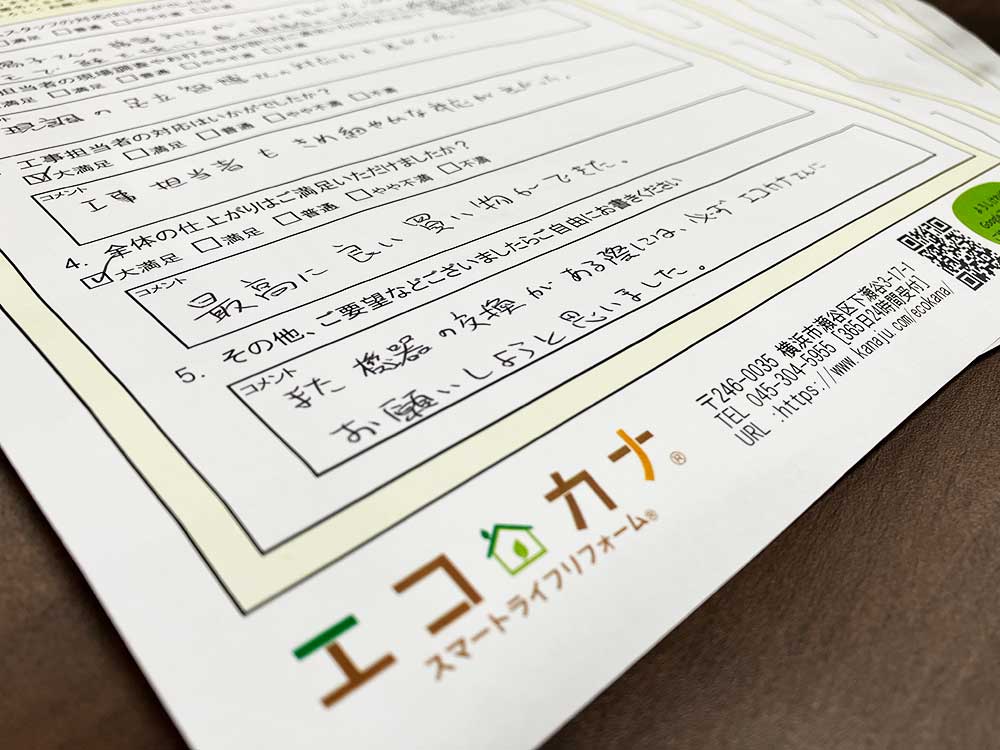 □満足 □普通 □やや不満
□満足 □普通 □やや不満
コメント
工事担当者の対応はいかがでしたか?
☑大満足 □満足 □普通 □やや不満 □不満
コメント
工事担当者もきめ細やかな対応
4. 全体の仕上がりはご満足いただけましたか?
☑大満足 □満足 □普通 □やや不満 □不満
コメント
最高に良い買い物ができた。
5. その他、ご要望などございましたらご自由にお書きください
コメント
また機器の交換がある際には、必ずエコカナさんに
お願いしようと思いました。
〒246-0035 横浜市瀬谷区下瀬谷3-17-1
TEL 045-304-5955 [365日24時間受付]
URL :https://www.kanaju.com/ecokana/
エコカナ®
スマートライフリフォーム®